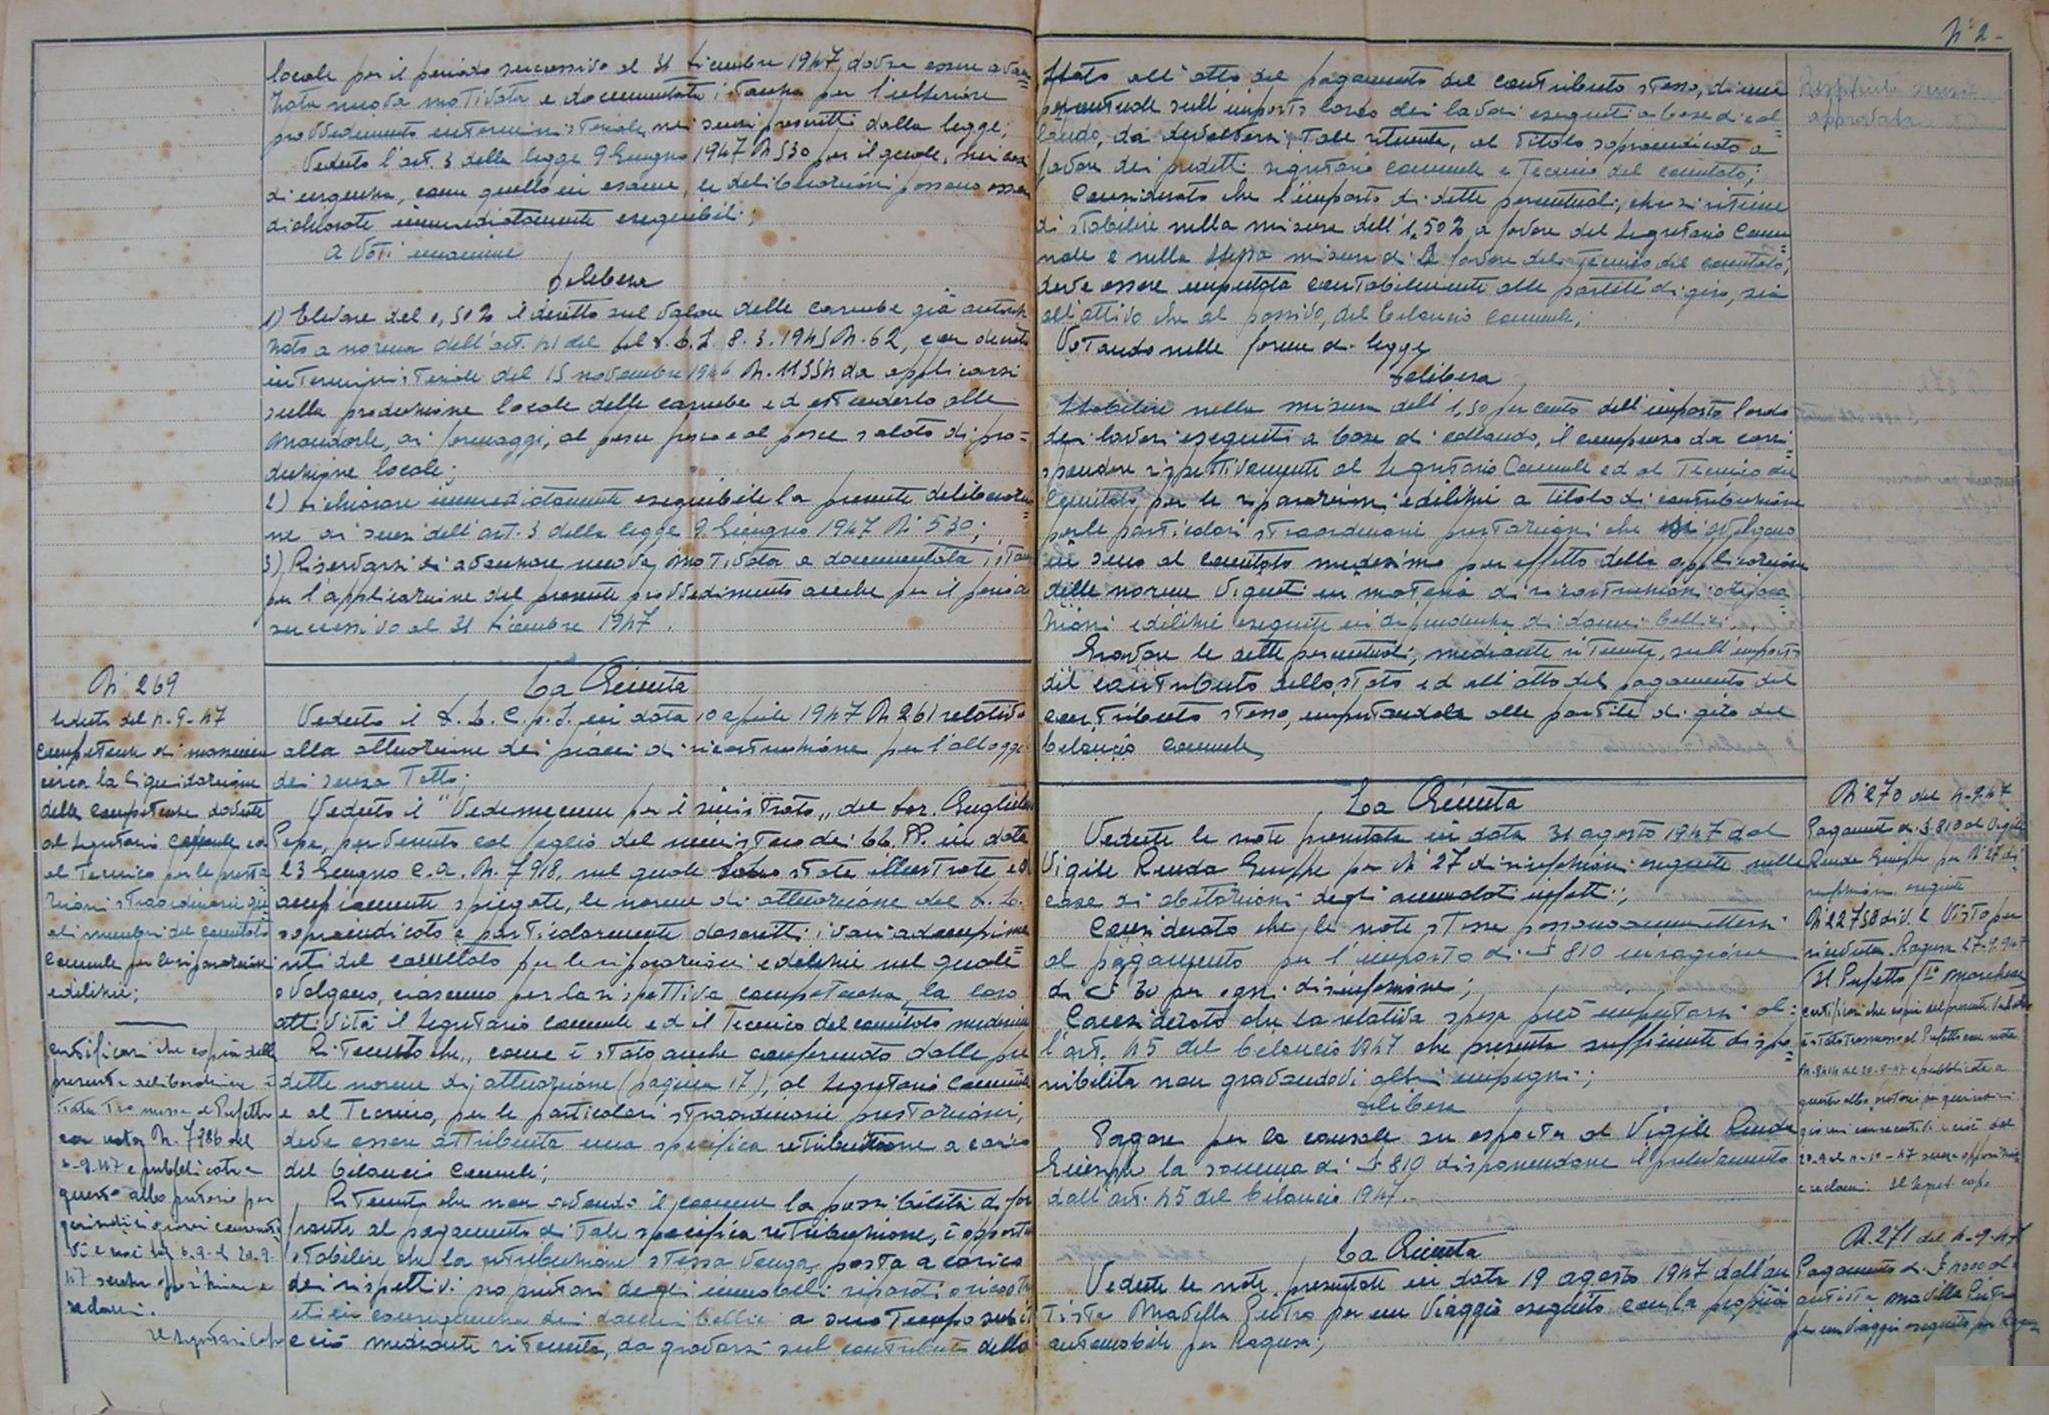 locale per il periodo successivo al 31 dicembre 1947, dovrà essere avan=
zata nuova motivata e documentata istanza per l'ulteriore
provvedimento interministeriale, nei sensi prescritti dalla legge;
Veduto l'art. 3 della legge 9 Giugno 1947 N 530 per il quale, nei casi
di urgenza, come quello in esame, le deliberazioni possono essere
dichiarate immediatamente eseguibili;
a voti unanime
Delibera
1) Elevare del 0,50% il diritto sul valore delle carrube già autoriz
zato a norma dell'art. 41 del D.L.L. 8.3.1945 N. 62, con decreto
interministeriale del 15 novembre 1946 N. 11554 da applicarsi
sulla produzione locale delle carrube ed estenderlo alle
mandorle, ai formaggi, al pesce fresco e al pesce salato di pro=
duzione locale;
2) Dichiarare immediatamente eseguibile la presente deliberazio=
ne ai sensi dell'art. 3 della legge 9 Giugno 1947 N. 530;
3) Riservarsi di avanzare nuova, motivata e documentata istanza
per l'applicazione del presente provvedimento anche per il periodo
successivo al 31 dicembre 1947.
N. 269
Seduta del 4-9-47
circa la liquidazione
delle competenze dovute
al Segretario Comunale ed
al Tecnico per le presta
zioni straordinarie
ai membri del comitato
Comunale per le riparazioni
edilizie;
Certificasi che copia della
presente deliberazione è
stata trasmessa al Prefetto
con nota N. 7786 del
5-9-47 e pubblicata a
questo albo pretorio per
quindici giorni consecuti
vi e cioè dal 6-9 al 20-9-
47 senza opposizione e
reclami.
Il Segretario Capo
La Giunta
Veduto il D.L.C.p.S. in data 10 aprile 1947 N 261 relativo
alla attuazione dei piani di ricostruzione per l'alloggio
dei senza tetto;
Veduto il "Vademecum per il sinistrato" del Dor. Guglielmo
Pepe, pervenuto col foglio del ministero dei LL.PP. in data
23 Giugno c.a. N. 7918, nel quale sono state illustrate ed
ampiamente spiegate, le norme di attuazione del D.L.
sopraindicato e particolarmente descritti i vari adempime
nti del comitato per le riparazioni edilizie nel quale
svolgono, ciascuno per la rispettiva competenza, la loro
attività il Segretario Comunale ed il Tecnico del comitato medesimo
Ritenuto che, come è stato anche confermato dalle pre
dette norme di attuazione (pagina 17), al Segretario Comunale
e al Tecnico, per le particolari straordinarie prestazioni,
deve essere attribuita una specifica retribuzione a carico
del bilancio Comunale;
Ritenuto che non avendo il comune la possibilità di far
fronte al pagamento di tale specifica retribuzione, è opportuno
stabilire che la retribuzione stessa venga posta a carico
dei rispettivi proprietari degli immobili riparati o ricostru
iti in conseguenza dei danni bellici a suo tempo subiti
e ciò mediante ritenuta, da gravarsi sul contributo dello
N. 2-
Stato all'atto del pagamento del contributo stesso, di una
percentuale sull'importo lordo dei lavori eseguiti a base di col=
laudo, da devolversi, tale ritenuta, al titolo sopraindicato a
favore dei predetti segretario comunale e tecnico del comitato;
Considerato che l'importo di dette percentuali, che si ritiene
di stabilire nella misura dell'1,50% a favore del Segretario Comu=
nale e nella stessa misura a favore del Tecnico del comitato,
deve essere imputata contabilmente alle partite di giro, sia
all'attivo che al passivo, del bilancio comunale;
Votando nelle forme di legge
Delibera
Stabilire nella misura dell'1,50 per cento dell'importo lordo
dei lavori eseguiti a base di collaudo, il compenso da corri=
spondere rispettivamente al Segretario Comunale ed al Tecnico del
Comitato per le riparazioni edilizie a titolo di contribuzione
per le particolari straordinarie prestazioni che svolgono
in seno al comitato medesimo per effetto della applicazione
delle norme vigenti in materia di ricostruzioni o ripara=
zioni edilizie eseguite in dipendenza di danni bellici.
Gravare le dette percentuali, mediante ritenuta, sull'importo
del contributo dello stato ed all'atto del pagamento del
contributo stesso, imputandola alle partite di giro del
bilancio comunale
La Giunta
Vedute le note presentate in data 31 agosto 1947 dal
Vigile Renda Giuseppe per N 27 disinfezioni eseguite nelle
case di abitazioni degli ammalati infetti;
Considerato che le note stesse possono ammettersi
al pagamento per l'importo di £ 810 in ragione
di £ 30 per ogni disinfezione;
Considerato che la relativa spesa può imputarsi al=
l'art. 45 del bilancio 1947 che presenta sufficiente dispo=
nibilità non gravandovi altri impegni;
Delibera
Pagare per la causale su esposta al Vigile Renda
Giuseppe la somma di £ 810 disponendone il prelevamento
dall'art. 45 del bilancio 1947.
N. 270 del 4-9-47
Pagamento di £ 810 al Vigile
Renda Giuseppe per N 27 di
sinfezioni eseguite
N 22750 div. 2 Visto per
ricevuta. Ragusa 27-9-947
Il Prefetto
Certificasi che copia del presente
è stato trasmesso al Prefetto con nota
e pubblicata a
questo albo pretorio per quindici
giorni consecutivi e cioè dal
senza opposizioni
e reclami. Il Segret. capo
La Giunta
Vedute le note presentate in data 19 agosto 1947 dall'au
tista Mavilla Pietro per un viaggio eseguito con la propria
automobile per Ragusa;
N. 271 del 4-9-47
autista Mavilla Pietro
per un viaggio eseguito per Ragusa